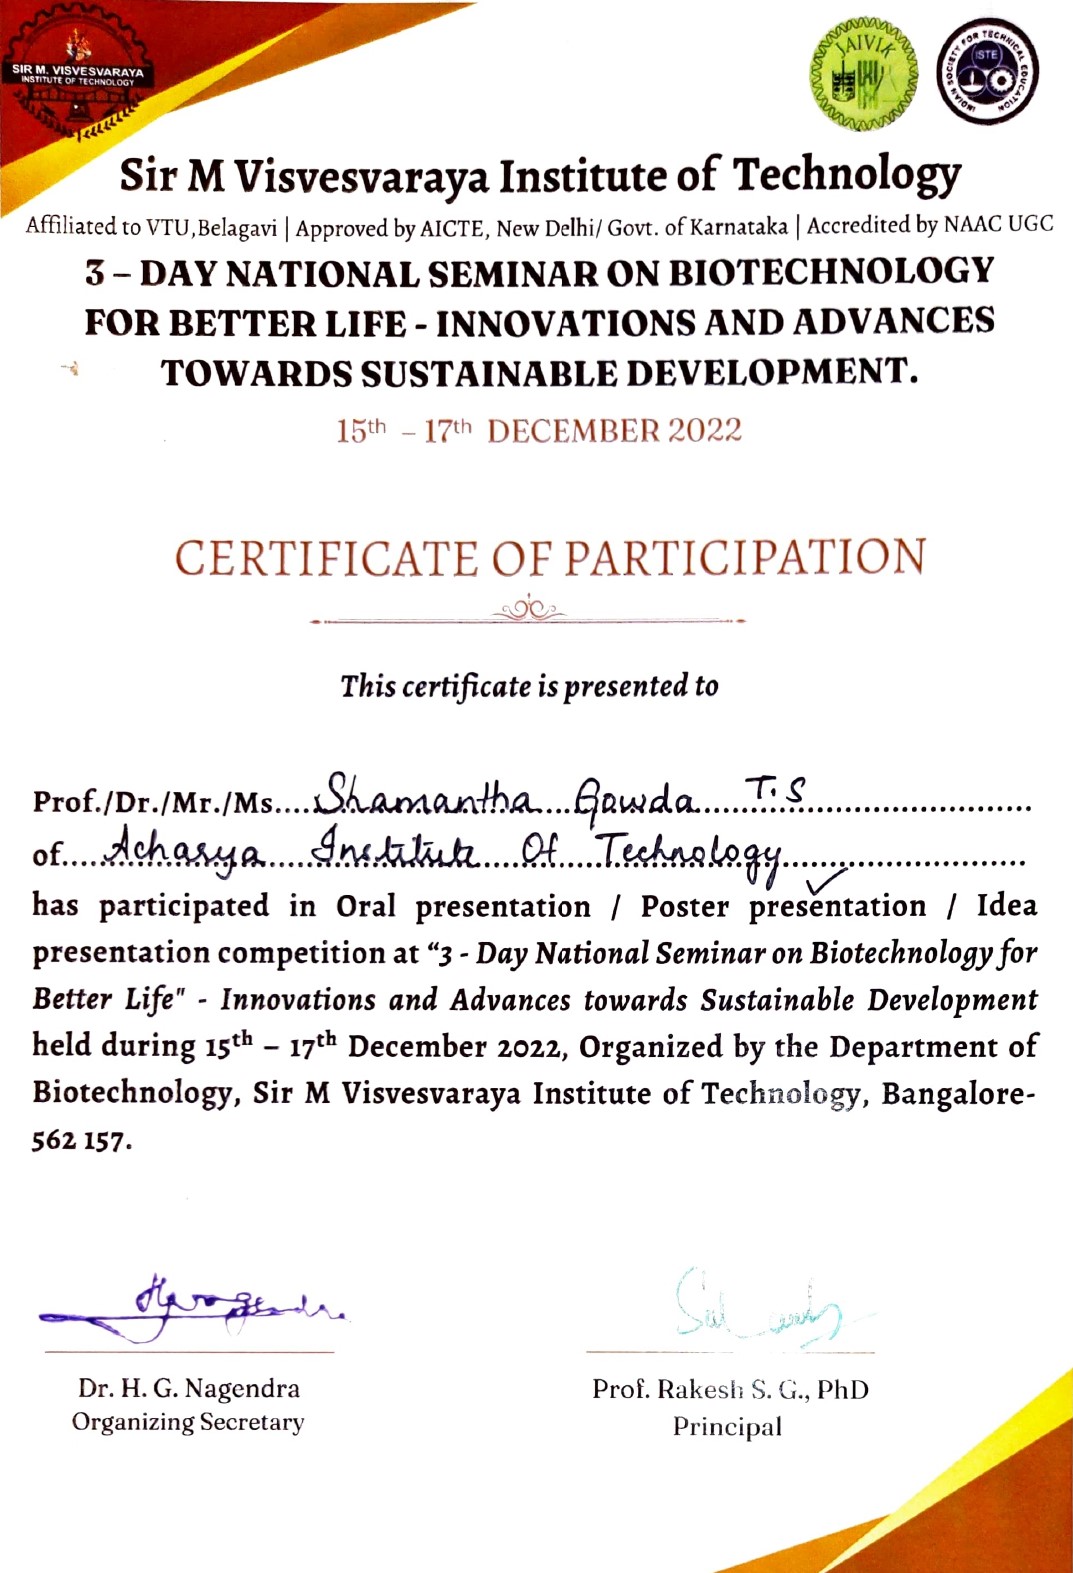 SIR M. VISVESVARAYA
INSTITUTE OF TECHNOLOGY
JAIVIK
INDIAN SOCIETY FOR TECHNICAL EDUCATION
ISTE
Sir M Visvesvaraya Institute of Technology
Affiliated to VTU,Belagavi | Approved by AICTE, New Delhi/ Govt. of Karnataka | Accredited by NAAC UGC
3 – DAY NATIONAL SEMINAR ON BIOTECHNOLOGY
FOR BETTER LIFE - INNOVATIONS AND ADVANCES
TOWARDS SUSTAINABLE DEVELOPMENT.
15th – 17th DECEMBER 2022
CERTIFICATE OF PARTICIPATION
This certificate is presented to
Prof./Dr./Mr./Ms....Shamantha Gowda T.S
of.....Acharya Institute Of Technology
has participated in Oral presentation / Poster presentation / Idea
presentation competition at “3 - Day National Seminar on Biotechnology for
Better Life" - Innovations and Advances towards Sustainable Development
held during 15th – 17th December 2022, Organized by the Department of
Biotechnology, Sir M Visvesvaraya Institute of Technology, Bangalore-
562 157.
Dr. H. G. Nagendra
Organizing Secretary
Prof. Rakesh S. G., PhD
Principal